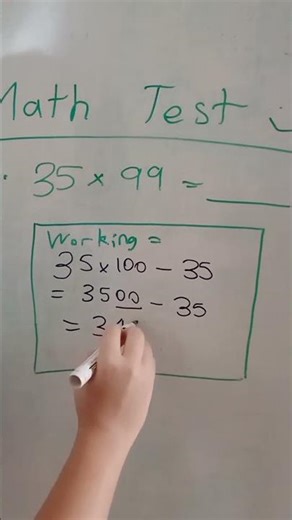 Math Test
35 × 99 = ____
Working =
35 × 100 - 35
= 3500 - 35
= 3